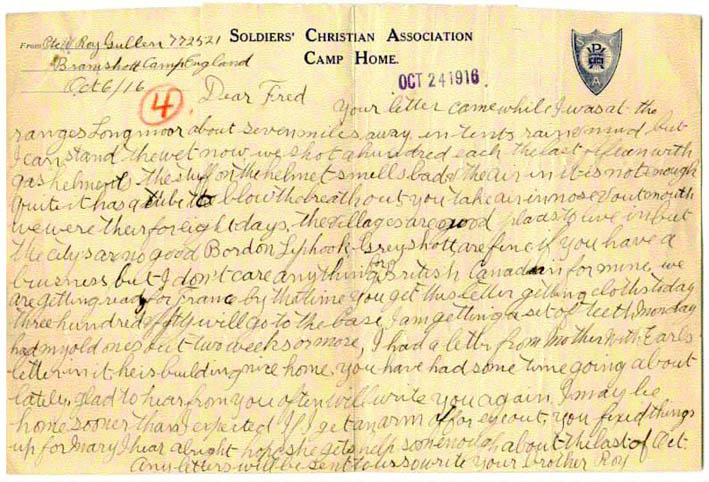 SOLDIERS' CHRISTIAN ASSOCIATION
CAMP HOME.
From Pte W Roy Gullen 772521
Bramshott Camp England
Oct 6/16
OCT 24 1916
4
Dear Fred
Your letter came while I was at the
ranges Longmoor about seven miles away in tents rain & mud but
I can stand the wet now we shot a hundred each the last fifteen with
gas helments the stuff on the helmet smells bad & the air in it is not enough
quite it has a tube to blow the breath out you take air in nose & out mouth
we were their for eight days. the villages are good places to live in but
the citys are no good Bordon Liphook Greyshott are fine if you have a
buisness but I don't care anything for British Canadain for mine, we
are getting ready for france by the time you get this letter getting cloths today
three hundred & fifty will go to the base, I am getting a set of teeth Monday
had my old ones out two weeks or more, I had a letter from Mother with Earls
letter in it he is building nize home. you have had some time going about
lately, glad to hear from you often will write you again I may be
home sooner than I expected If I get an arm off or eye out, you fixed things
up for Mary I hear alright hope she gets help soon enough about the last of Oct.
Any letters will be sent to us so write your brother Roy